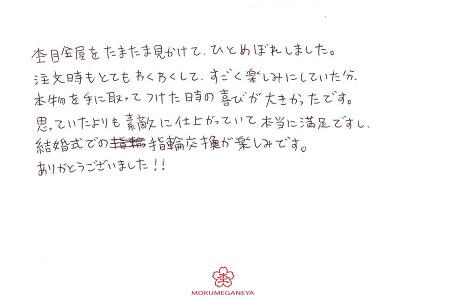 杢目金屋をたまたま見かけて、ひとめぼれしました。
注文時もとてもわくわくして、すごく楽しみにしていた分、
本物を手に取ってつけた時の喜びが大きかったです。
思っていたよりも素敵に仕上がっていて本当に満足ですし、
結婚式での指輪交換が楽しみです。
ありがとうございました!!
MOKUMEGANEYA